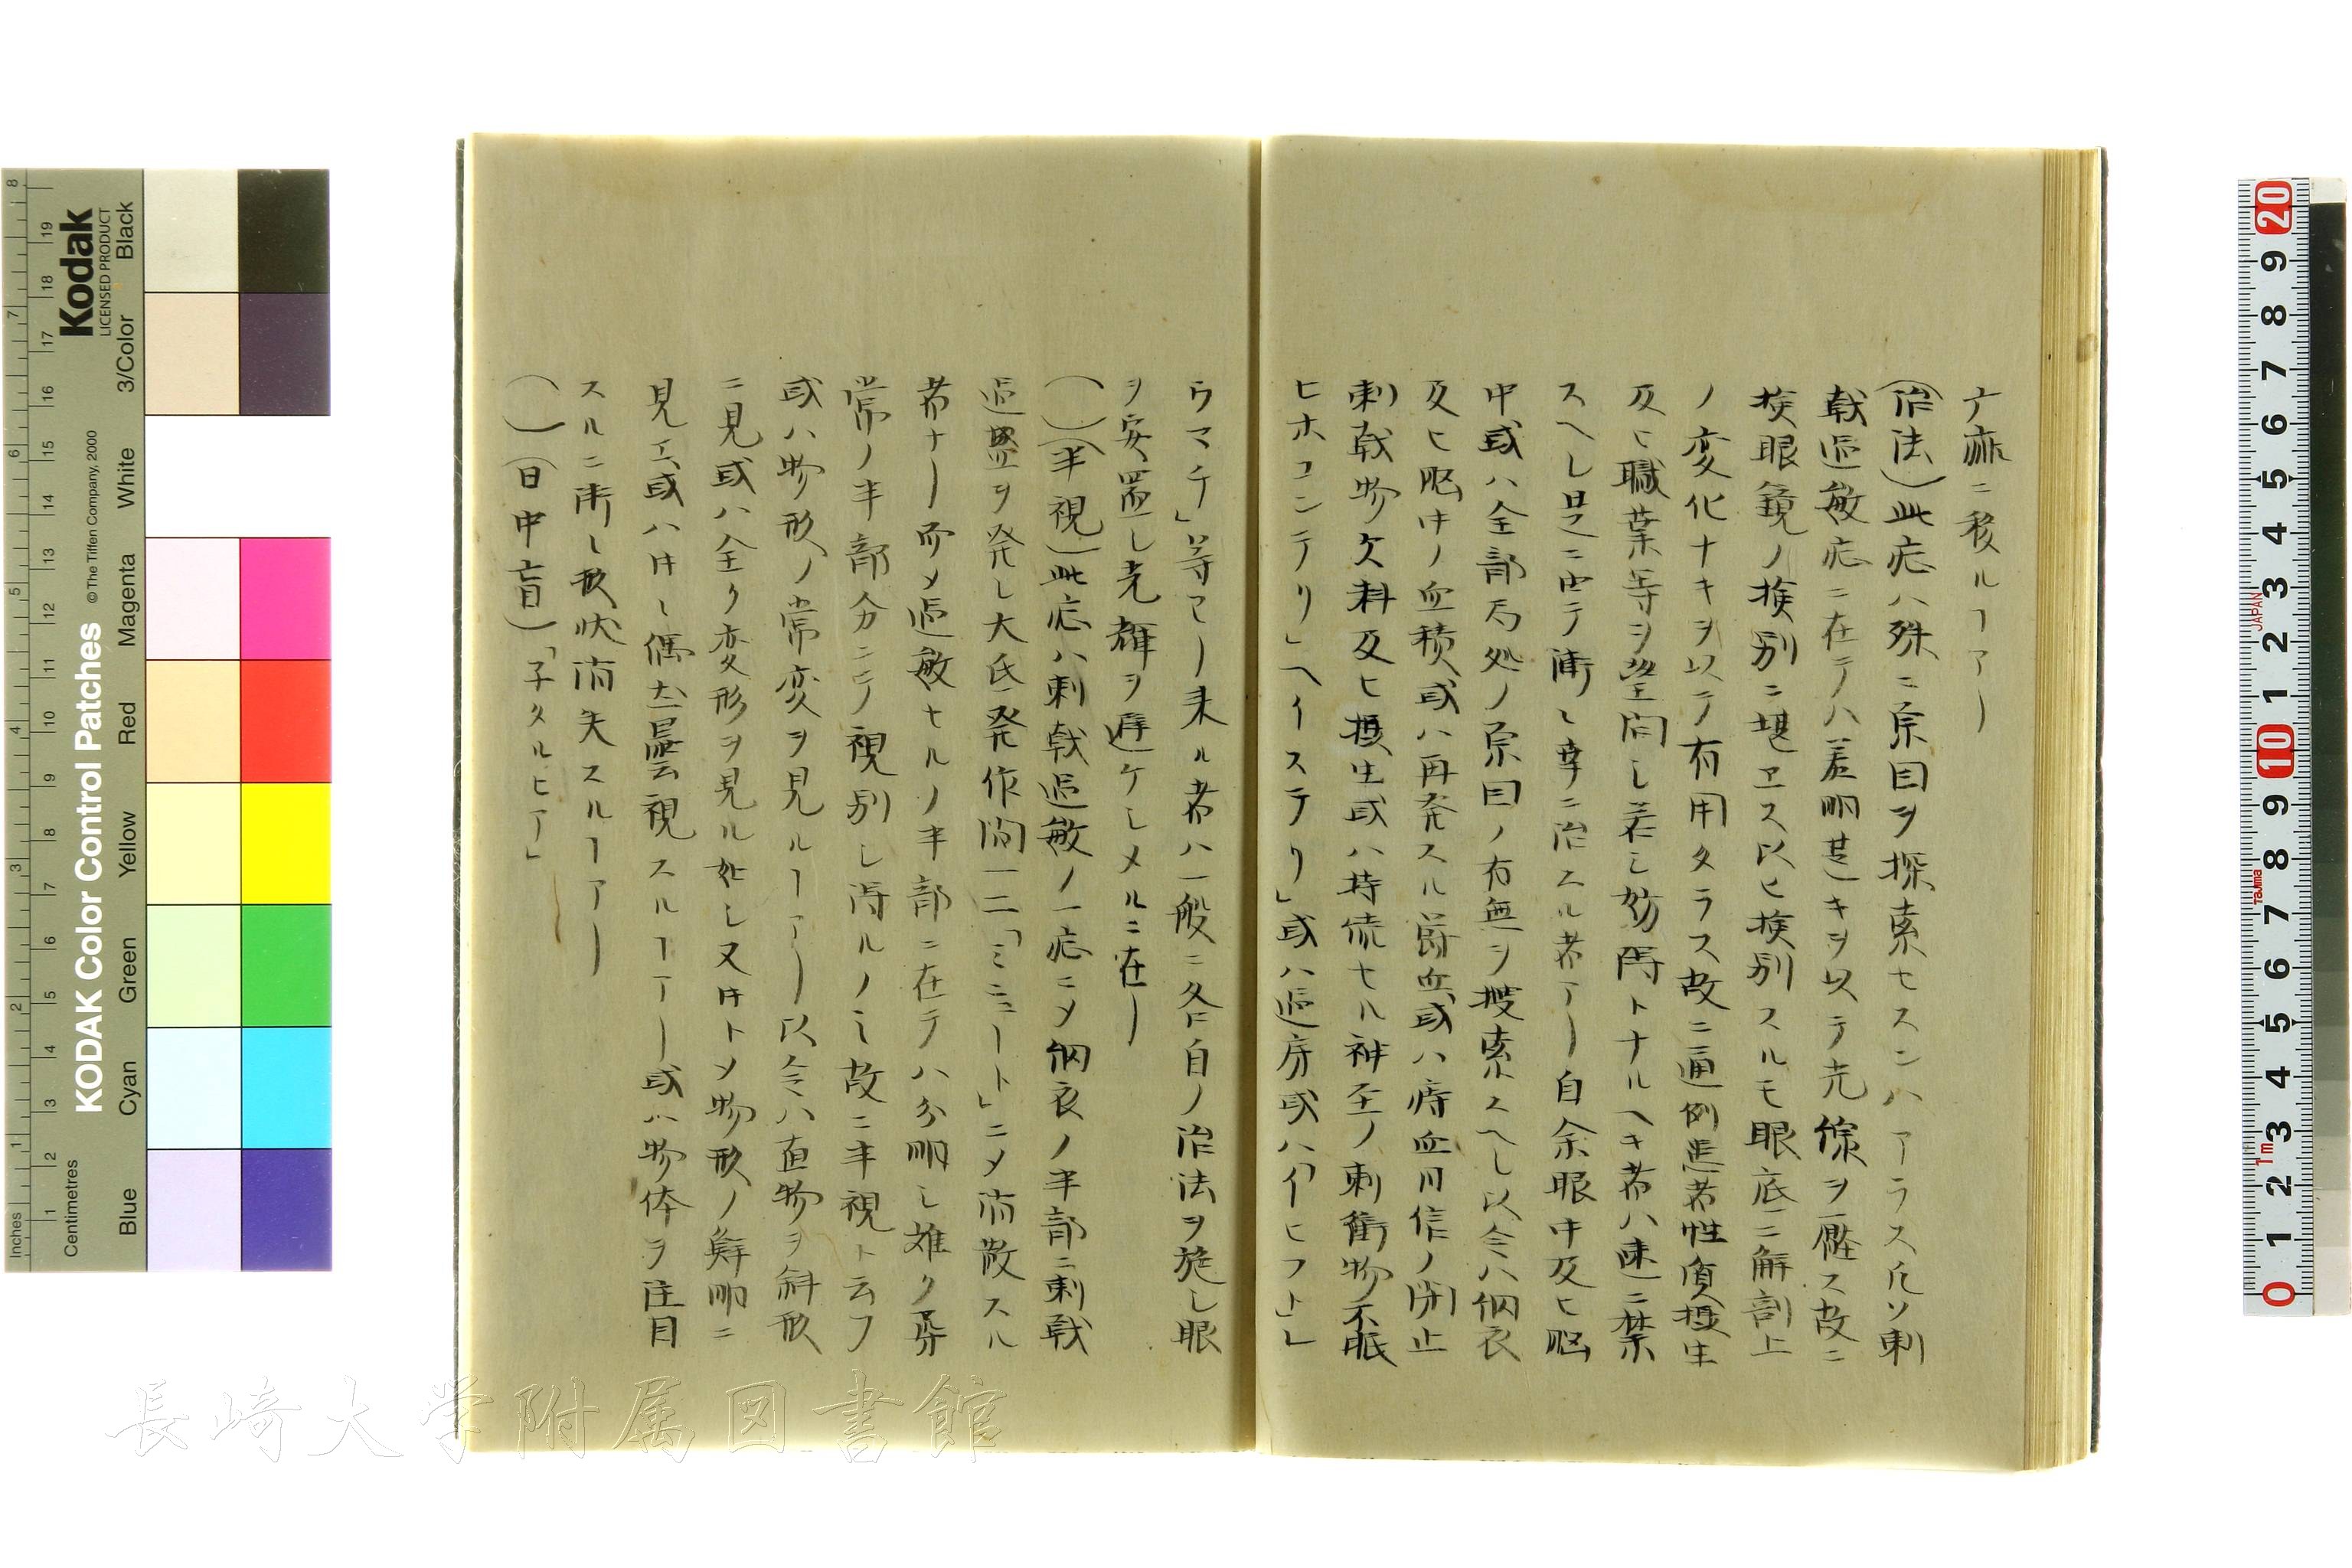 ㄅ亦ニ移ルヿアリ
(治法)此症ハ殊ニ原因ヲ探索セスンハアラス凡ソ刺
戟過敏症ニ在テハ羞明甚キヲ以テ光線ヲ壓ス故ニ
撿眼鏡ノ撿別ニ堪ヱス以ヒ撿別スルモ眼底ニ解剖上
ノ変化ナキヲ以テ有用タラス故ニ通例患者性質摂生
及ヒ職業等ヲ望問シ若シ妨碍トナルヘキ者ハ速ニ禁
スヘシ是ニ由テ漸々幸ニ治スル者アリ自余眼中及ヒ脳
中或ハ全部局処ノ原因ノ有無ヲ捜索スヘシ以令ハ網衣
及ヒ脳中ノ血積或ハ再発スル欝血或ハ痔血月信ノ閉止
刺戟物欠料及ヒ摂生或ハ持続セル神至ノ刺衝物不眠
ヒホコンテリ」ヘイステリ」或ハ過房或ハ「イヒフト」レ
ウマチ」等ヨリ来ル者ハ一般ニ各自ノ治法ヲ施シ眼
ヲ安置シ光輝ヲ避ケシメルニ在リ
( )(半視)此症ハ刺戟過敏ノ一症ニメ網衣ノ半部ニ刺戟
過盛ヲ発シ大氐発作間一二「ミニュート」ニメ消散スル
者ナリ而メ過敏セルノ半部ニ在テハ分明シ难ク尋
常ノ半部分ニテ視別シ得ルノミ故ニ半視ト云フ
或ハ物形ノ常変ヲ見ルヿアリ以令ハ直物ヲ斜形
ニ見或ハ全ク変形ヲ見ル如シ又時トメ物形ノ鮮明ニ
見エ或ハ時々偶尓曇視スルヿアリ或ハ物体ヲ注目
スルニ漸々形状消失スルヿアリ
( )(日中盲)「子タルヒア」
KODAK Color Control Patches
© The Tiffen Company, 2000
Kodak
LICENSED PRODUCT
Inches
Centimetres
Blue
Cyan
Green
Yellow
Red
Magenta
White
3/Color
Black
JAPAN
Tajima
1m
長崎大学附属図書館